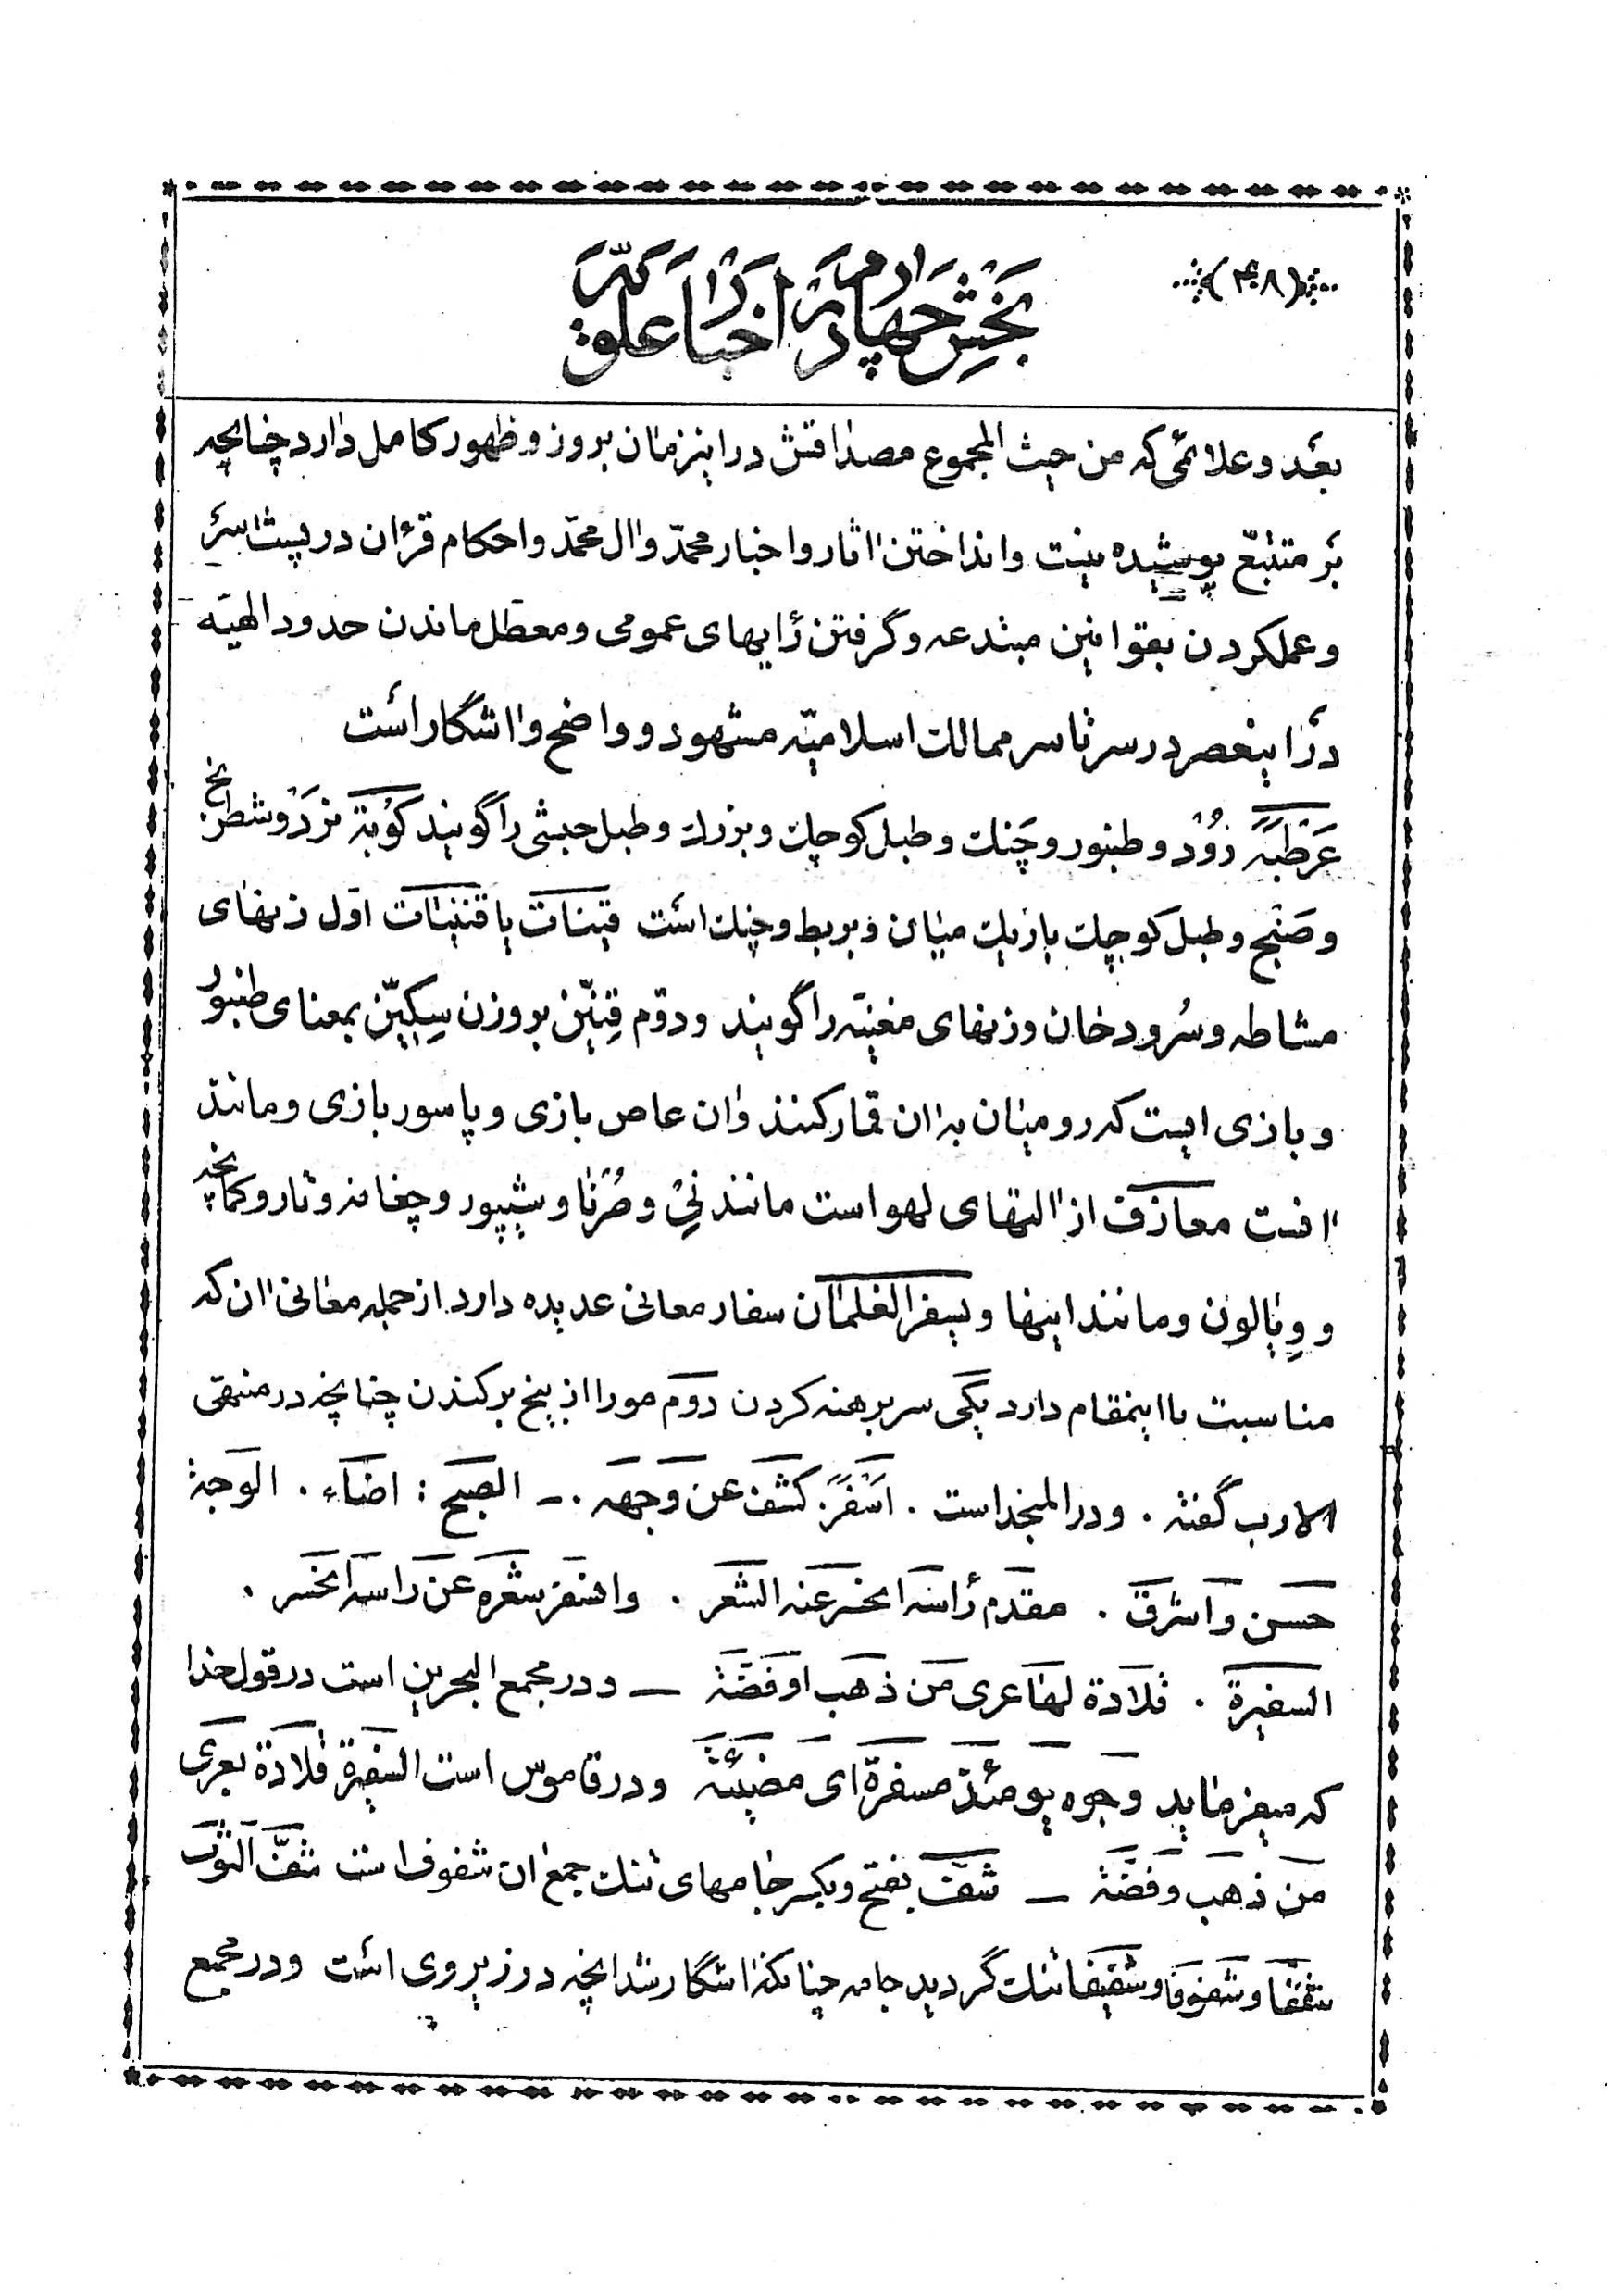 (۴۰۸)
بخش چهارم در اخبار علویّه
بعد و علائمی که من حیث المجموع مصداقش در اینزمان بروز و ظهور کامل دارد چنانچه
بر متتبّع پوشیده نیست و انداختن اثار و اخبار محمّد و ال محمّد و احکام قرءان در پشت سر
و عملکردن بقوانین مبتدعه و گرفتن رایهای عمومی و معطّل ماندن حدود الهیّه
در اینعصر در سرتاسر ممالک اسلامیّه مشهود و واضح و اشکار است
عَرطَبَه رُوْد و طنبور و چَنک و طبل کوچک و بزرک و طبل حبشی را گویند کوبَة نَرد و شطرنج
و صَنج و طبل کوچک باریک میان و بربط و چنک است قینات یا قنّینات اوّل زنهای
مشاطه و سُرود خان و زنهای مغنیّه را گویند و دوّم قِنّین بروزن سِکّین بمعنای طنبور
و بازی ایست که رومیان به ان قمار کنند وان عاص بازی و پاسور بازی و مانند
انست معازف از التهای لهو است مانند نی و صُرنا و شیپور و چغانه و تار و کمانچه
و ویالون و مانند اینها ویسفر الغلمان سفار معانی عدیده دارد از جمله معانی ان که
مناسبت با اینمقام دارد یکی سر برهنه کردن دوم مو را از بیخ برکندن چنانچه در منتهی
الارب گفته . و در المنجد است . اَسفَرَ: کشف عن وجهه .ـ الصبح : اضاء . الوجه
حسن و اشرق . مقدم راسه انحسر عنه الشعر . وانسفر شعره عن راسه انحسر .
السفیرة . قلادة لها عری من ذهب او فضّة ـ و در مجمع البحرین است در قول خدا
که میفرماید وجوه یومئذ مسفرة ای مضیئة و در قاموس است السفیرة قلادة بعری
من ذهب و فضّة ـ شف بفتح و بکسر جامهای تنک جمع ان شفوف است شفّ الثوب
شففا و شفوفا و شفیفا تنک گردید جامه چنانکه اشکار شد انچه در زیر وی است و در مجمع